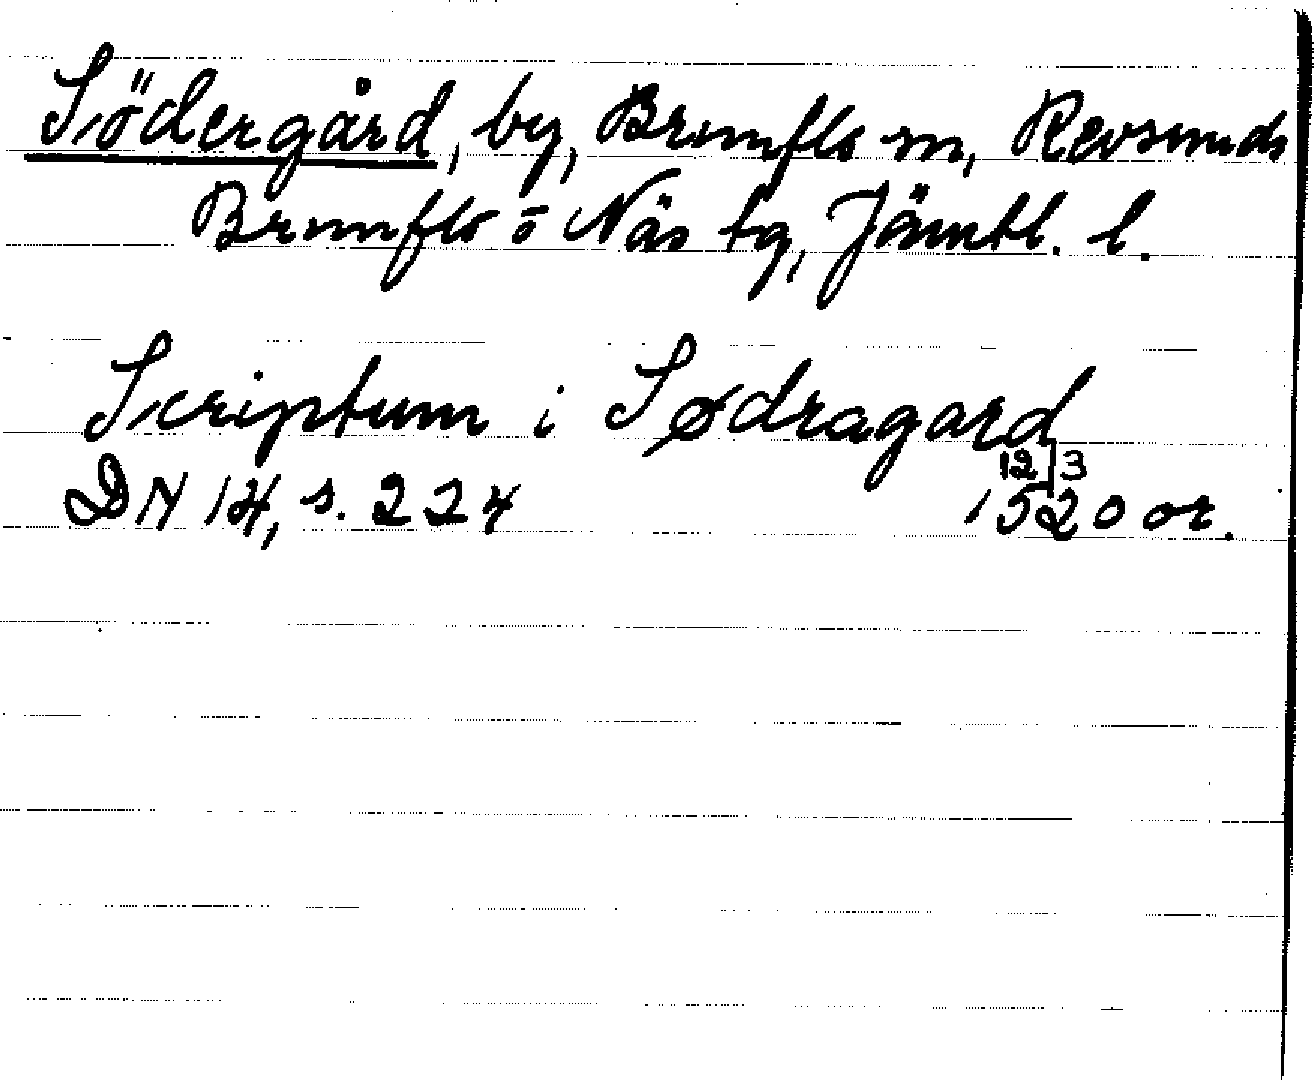 Södergård, by, Brunflo sn, Revsunds
Brunflo o Näs tg, Jämtl. l.
Scriptum i Sødragard
DN 14, s. 224 12/3 1520 or.